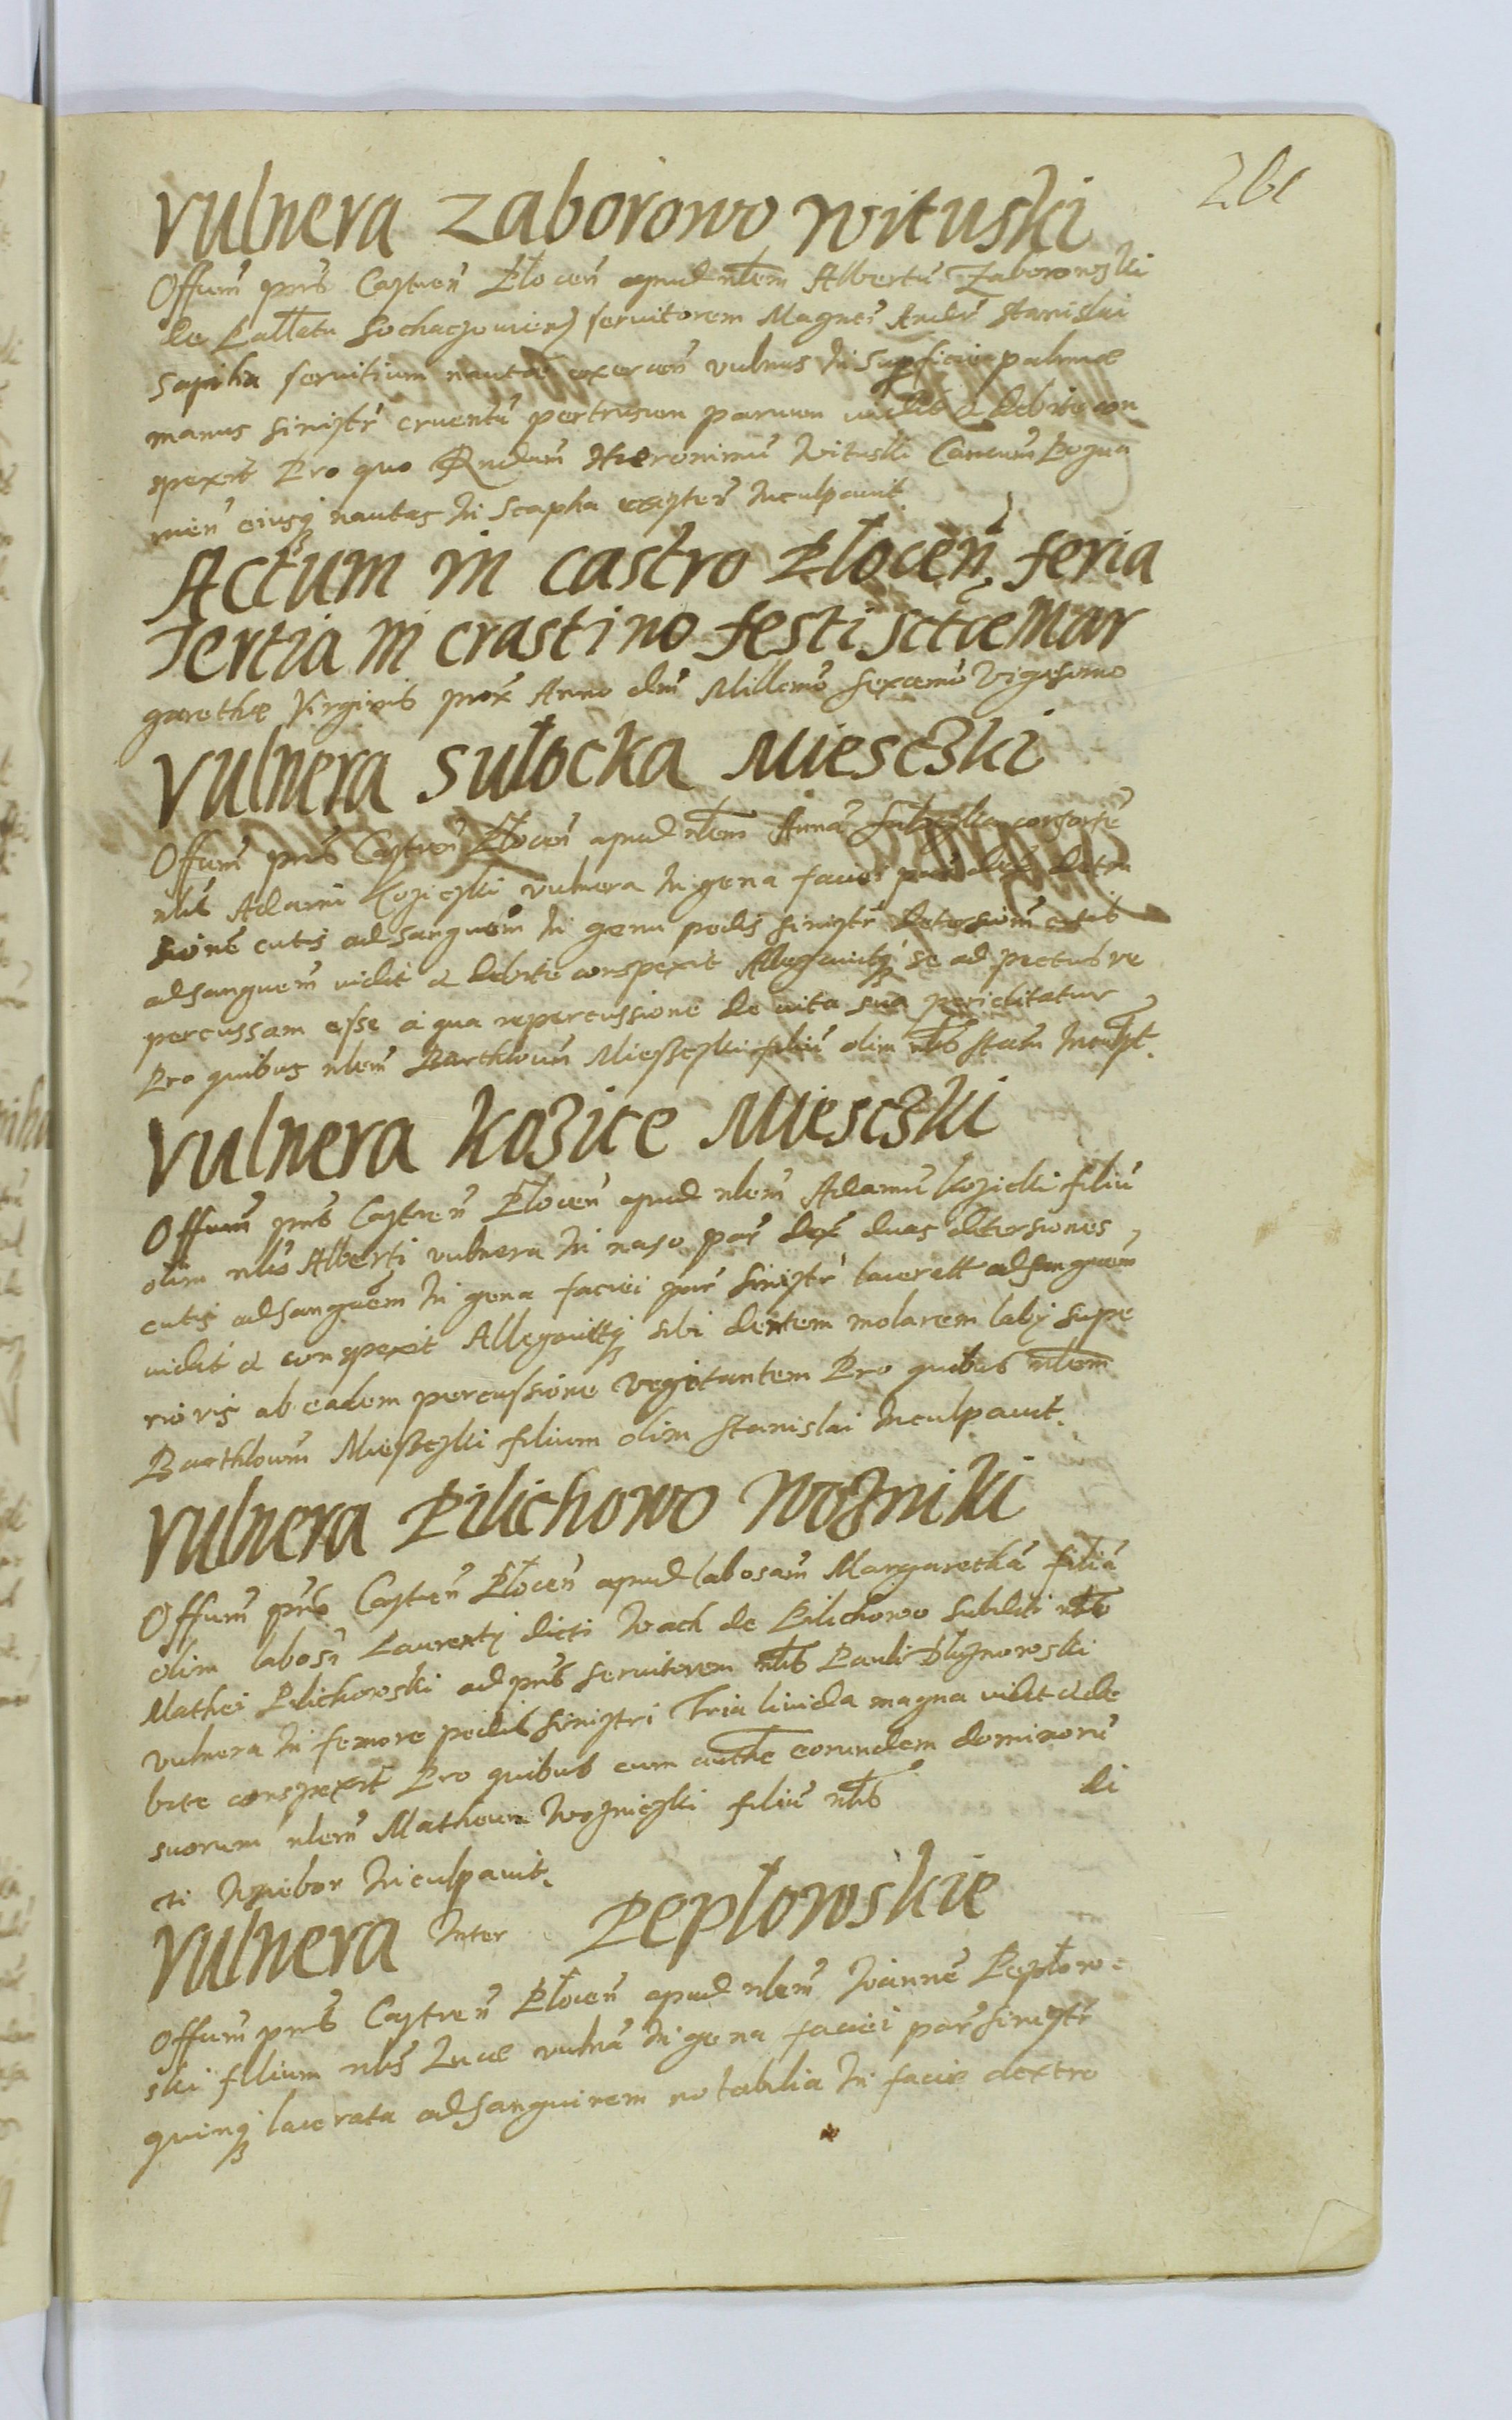 261
Vulnera Zaborowo Wituski
Offium pns Castren Płocen apud nlem Albertu Zaborowski
de Pallatu Sochaczowien servitorem Magnci Andr Stanislai
Sapiha servitium nautae exercen vulnus in superficie palmae
manus sinistr cruentu pertrusum parvum vidit & debite con
spexit Pro quo Rndum Hieronimu Wituski Canoum Pozna
nien eiusq nautas in scapha existen inculpavit
Actum in castro Płocen feria
Tertia in crastino festi sctae Mar
garethae Virginis prox Anno dni Millemo sexcemo Vigesimo
Vulnera Sułocka Miesczki
Offium pns Castren Płocen apud nlem Anna consorte
nlis Adami Koziczki vulnera in gena faciei par dex detru
sione cutis ad sanguem in genu pedis sinistr detersionem cutis
ad sanguem vidit & debite conspexit Allegavitq se ad pectus re
percussam esse a qua repercussione de vita sua periclitatur
Pro quibus nlem Barthloum Mieszczki filiu olim nlis Stan inculpt.
Vulnera Kozice Miesczki
Offium pns Castren Płocen apud nlem Adamu Kozicki filiu
olim nlis Alberti vulnera in naso par dex duas detersiones
cutis ad sanguem in gena faciei par sinistr lacerat ad sanguem
vidit & conspexit Allegavitq sibi dentem molarem labij supe
rioris ab eadem percussione vegitantem Pro quibus nlem
Barthloum Mieszczki filium olim Stanislai inculpavit.
Vulnera Pilichowo Wozniki
Offium pns Castren Płocen apud labosam Margaretha filia
olim labosi Laurentij dicti Wach de Pilichowo subditi nlis
Mathei Pilichowski ad pns servitorem nlis Pauli
vulnera in femore pedis sinistri Tria livida magna vidit & de
bite conspexit Pro quibus cum authe eorundem dominoru
suorum nlem Matheum Wozniczki filiu nlis di
cti inculpavit.
Vulnera inter Peplowskie
Offium pns Castren Płocen apud nlem Joanne Peplow
ski filium nlis Lucae vulna in gena faciei par sinistr
quinq lacerata ad sanguinem notabilia in facie dextro